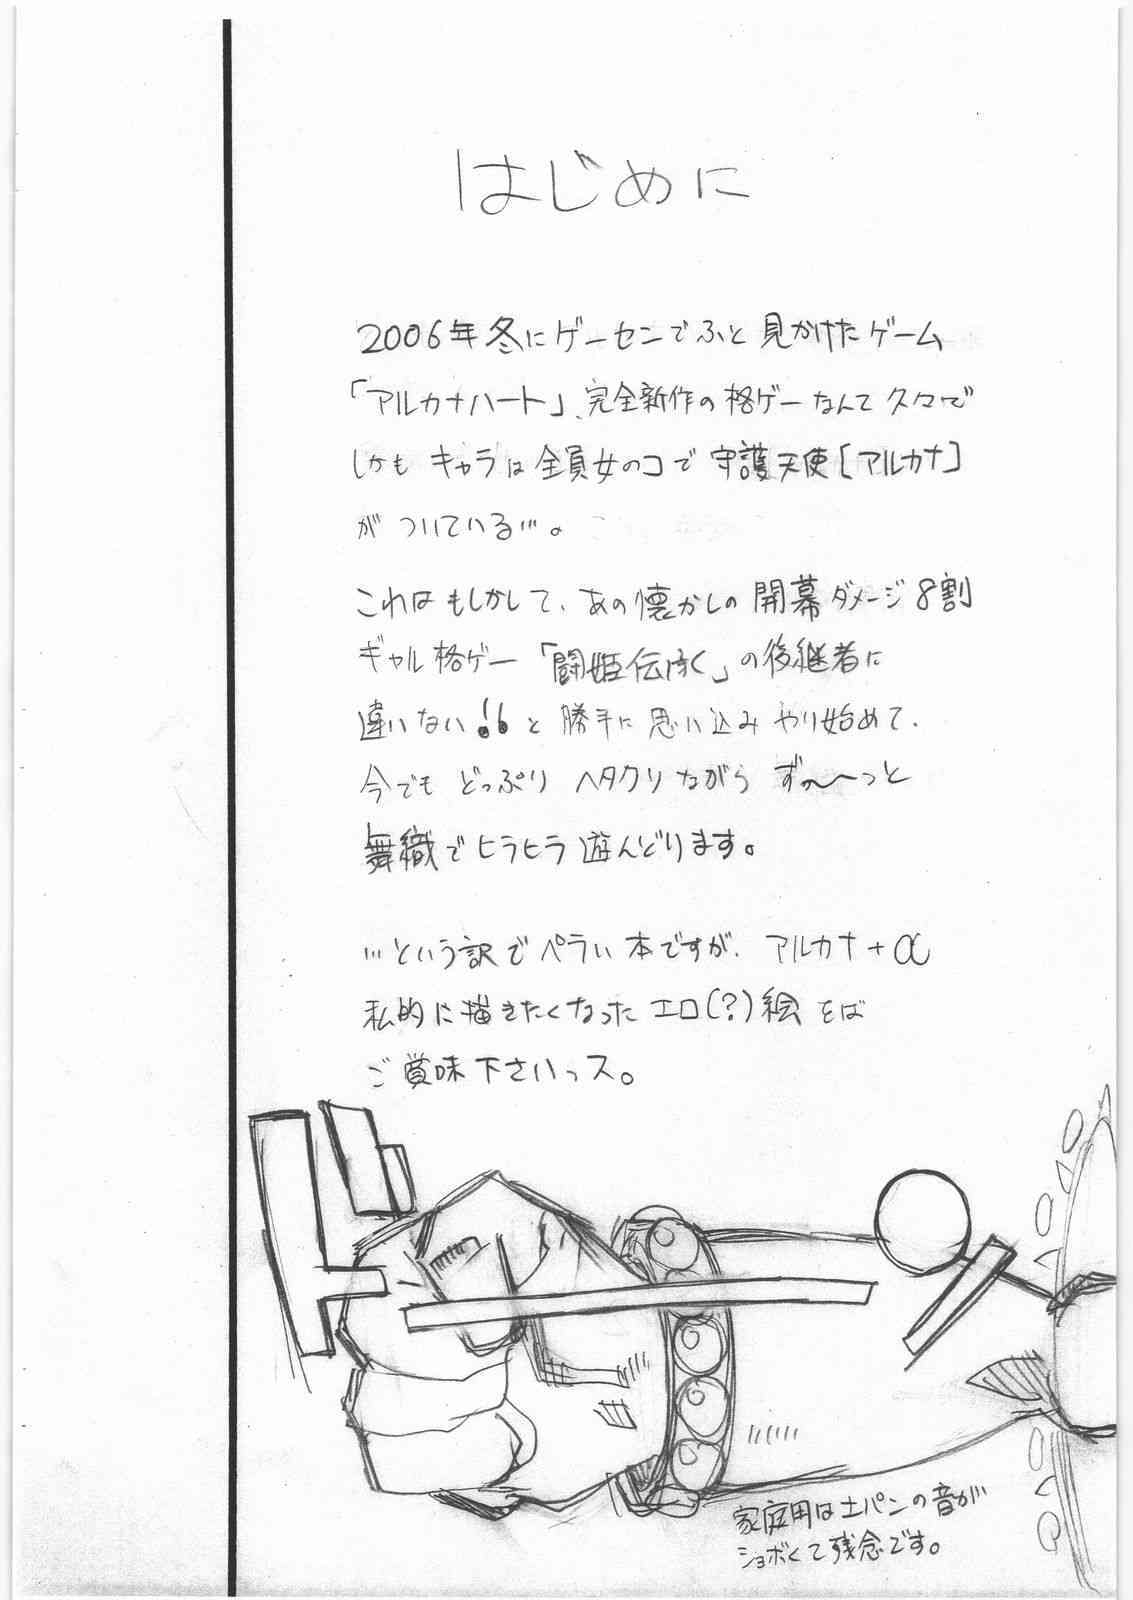 はじめに
2006年冬にゲーセンでふと見かけたゲーム
「アルカナハート」、完全新作の格ゲーなんて久々で
しかもキャラは全員女のコで守護天使[アルカナ]
がついている…。
これはもしかして、あの懐かしの開幕ダメージ8割
ギャル格ゲー「闘姫伝承」の後継者に
違いない!!と勝手に思い込みやり始めて、
今でもどっぷりヘタクソながらずの〜〜っと
舞織でヒラヒラ遊んどります。
…という訳でペラい本ですが、アルカナ+α
私的に描きたくなったエロ(?)絵をば
ご賞味下さいっス。
家庭用は土パンの音が
ショボくて残念です。